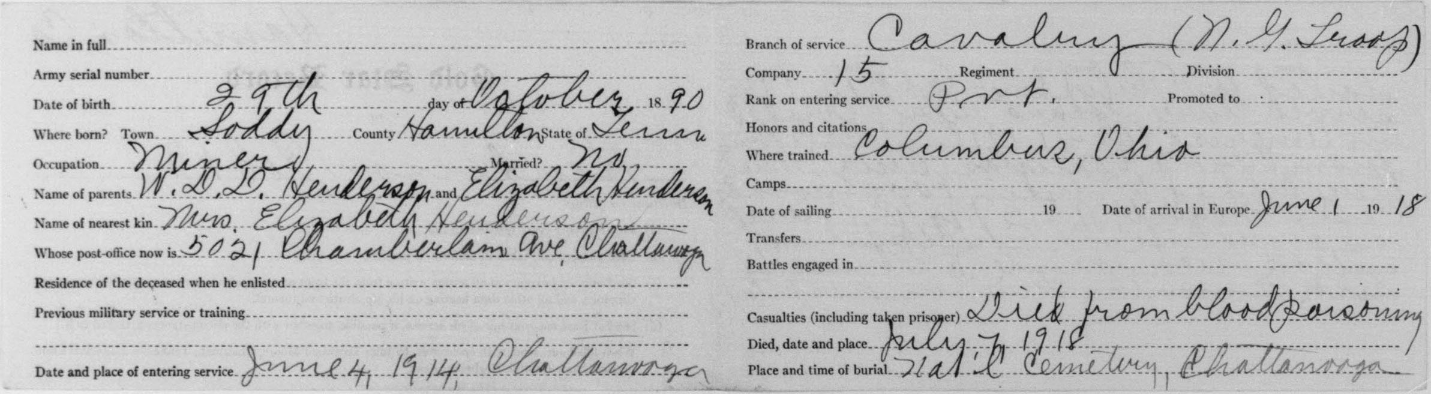 Name in full
Army serial number
Date of birth 29th day of October 1890
Where born? Town Soddy County Hamilton State of Tenn
Occupation Miner Married? No
Name of parents W. D. D. Henderson and Elizabeth Henderson
Name of nearest kin Mrs. Elizabeth Henderson
Whose post-office now is 5021 Chamberlain Ave, Chattanooga
Residence of the deceased when he enlisted
Previous military service or training
Date and place of entering service June 4, 1914, Chattanooga
Branch of service Cavalry (N. G. Troop)
Company 15 Regiment Division
Rank on entering service Pvt. Promoted to
Honors and citations
Where trained Columbus, Ohio
Camps
Date of sailing 19 Date of arrival in Europe June 1 1918
Transfers
Battles engaged in
Casualties (including taken prisoner) Died from blood poisoning
Died, date and place July 7, 1918
Place and time of burial Nat'l Cemetery, Chattanooga